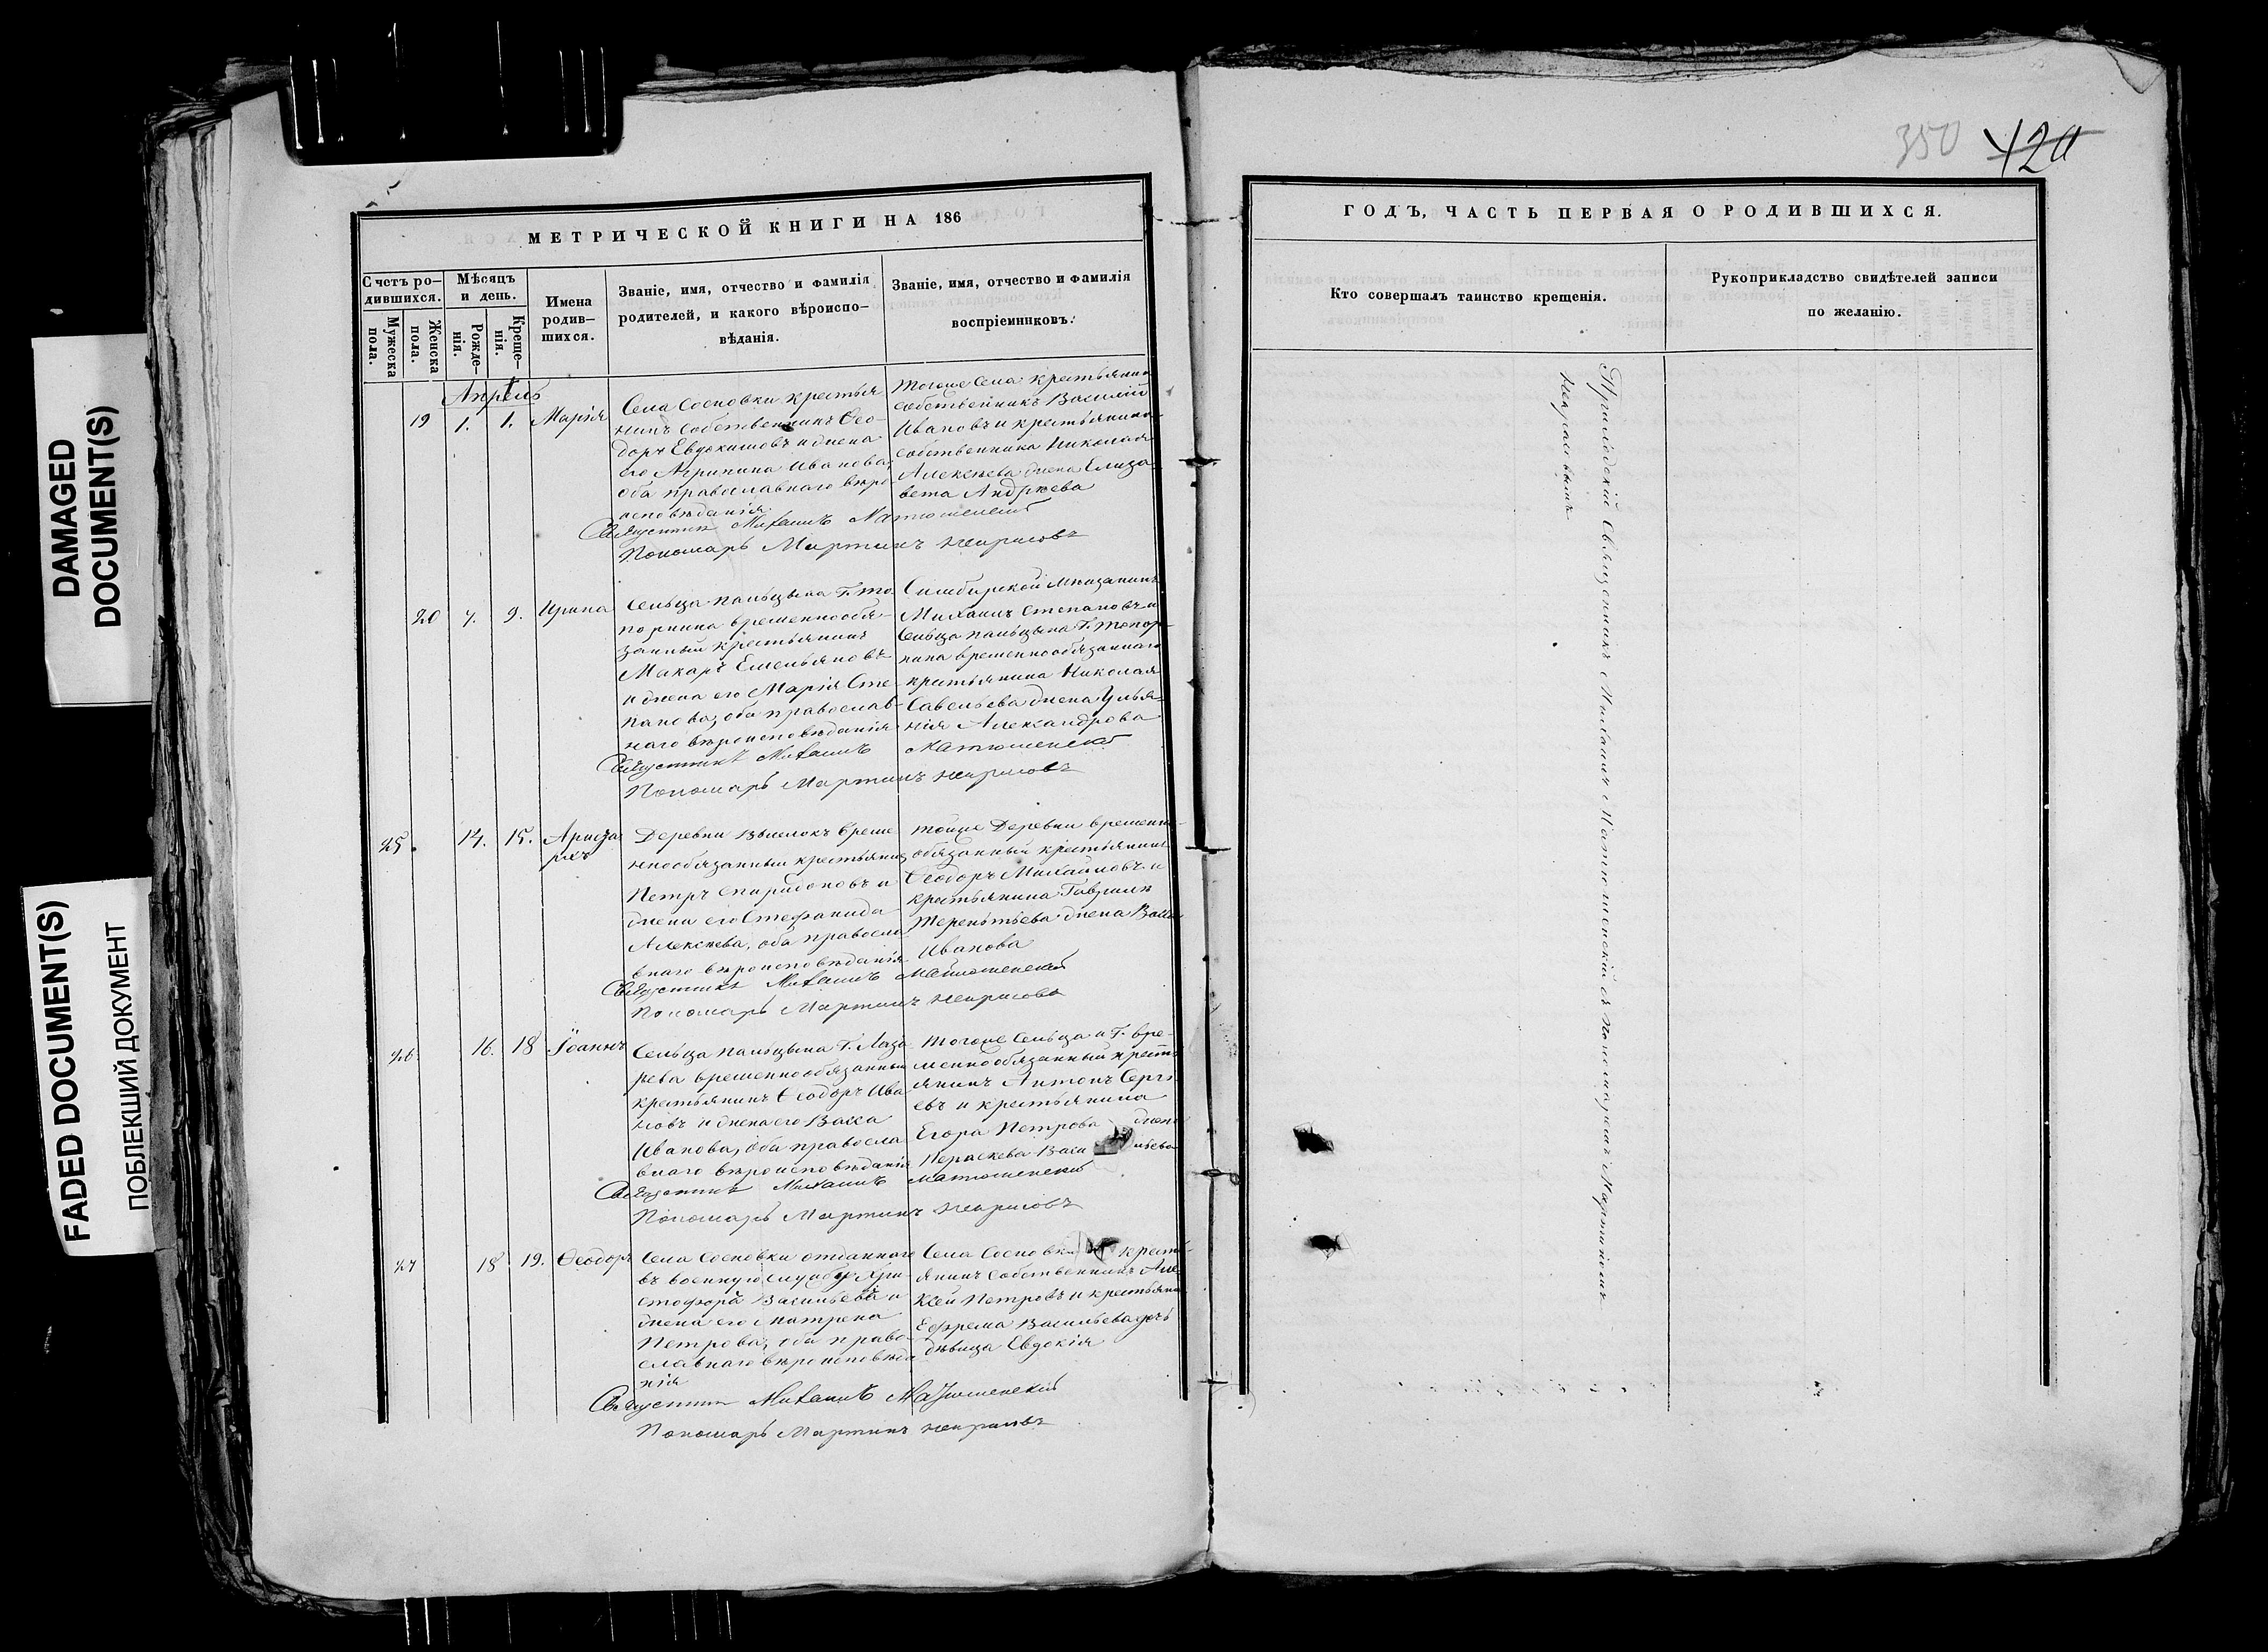 DAMAGED
DOCUMENT(S)
FADED DOCUMENT(S)
ПОБЛЕКШИЙ ДОКУМЕНТ
МЕТРИЧЕСКОЙ КНИГИ НА 186
Счетъ ро-
дившихся.
Мужеска
пола.
Женска
пола.
Мѣсяцъ
и день.
Рожде-
нія.
Креще-
нія.
Имена
родив-
шихся.
Званіе, имя, отчество и фамилія
родителей, и какого вѣроиспо-
вѣданія.
Званіе, имя, отчество и фамилія
воспріемниковъ.
Апрель
19 1. 1. Марія
Села Сосновки крестья
нинъ собственникъ Ѳео-
доръ Евдокимовъ и жена
его Агрипина Иванова,
оба православнаго вѣро
исповѣданія.
Тогоже Села крестьянинъ
собственникъ Василій
Ивановъ и крестьянина
собственника Николая
Алексѣева жена Елиза
вета Андреева
Священникъ Михаилъ Матюшенскій
Пономарь Мартинъ Некрасовъ
20 7. 9. Ирина
Сельца Пальцына Г. То
порнина временнообя-
занный крестьянинъ
Макаръ Емельяновъ
и жена его Марія Сте-
панова, оба православ-
наго вѣроисповѣданія
Симбирской мѣщанинъ
Михаилъ Степановъ и
Сельца Пальцына Г. Топор-
нина временнообязаннаго
крестьянина Николая
Савельева жена Улья-
нія Александрова
Священникъ Михаилъ Матюшенскій
Пономарь Мартинъ Некрасовъ
25. 14. 15. Ариста
рхъ
Деревни Выселокъ време
ннообязанный крестьянинъ
Петръ Спиридоновъ и
жена его Стефанида
Алексѣева, оба правосла
внаго вѣроисповѣданія
Тойже Деревни временно-
обязанный крестьянинъ
Ѳеодоръ Михайловъ и
крестьянина Гаврила
Терентьева жена Васса
Иванова
Священникъ Михаилъ Матюшенскій
Пономарь Мартинъ Некрасовъ
26. 16. 18 Іоаннъ
Сельца Пальцына Г. Лаза
рева временнообязанный
крестьянинъ Ѳеодоръ Ива
новъ и жена его Васса
Иванова, оба правосла
внаго вѣроисповѣданія
Тогоже Сельца и Г. вре-
меннообязанный кресть
янинъ Антонъ Сергѣ
евъ и крестьянина
Егора Петрова жена
Параскева Васильева
Священникъ Михаилъ Матюшенскій
Пономарь Мартинъ Некрасовъ
27 18 19. Ѳеодоръ
Села Сосновки отданнаго
въ военную службу Хри-
стофора Васильева и
жена его Матрена
Петрова, оба право-
славнаго вѣроисповѣда
нія
Села Сосновки кресть-
янинъ собственникъ Але-
ксѣй Петровъ и крестьяни
Ефрема Васильева дочь
дѣвица Евдокія
Священникъ Михаилъ Матюшенскій
Пономарь Мартинъ Некрасовъ
350 420
ГОДЪ, ЧАСТЬ ПЕРВАЯ О РОДИВШИХСЯ.
Кто совершалъ таинство крещенія.
Рукоприкладство свидѣтелей записи
по желанію.
Приходскій Священникъ Михаилъ Матюшенскій съ пономаремъ Мартиномъ
Некрасовымъ